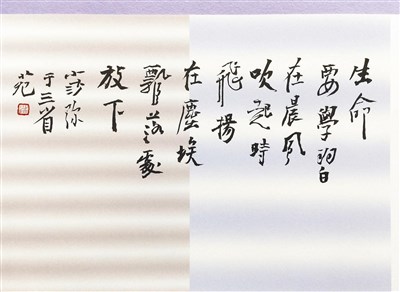 生命
要學明白
在晨風
吹起時
飛揚
在塵埃
飄落之處
放下
于三省
苑